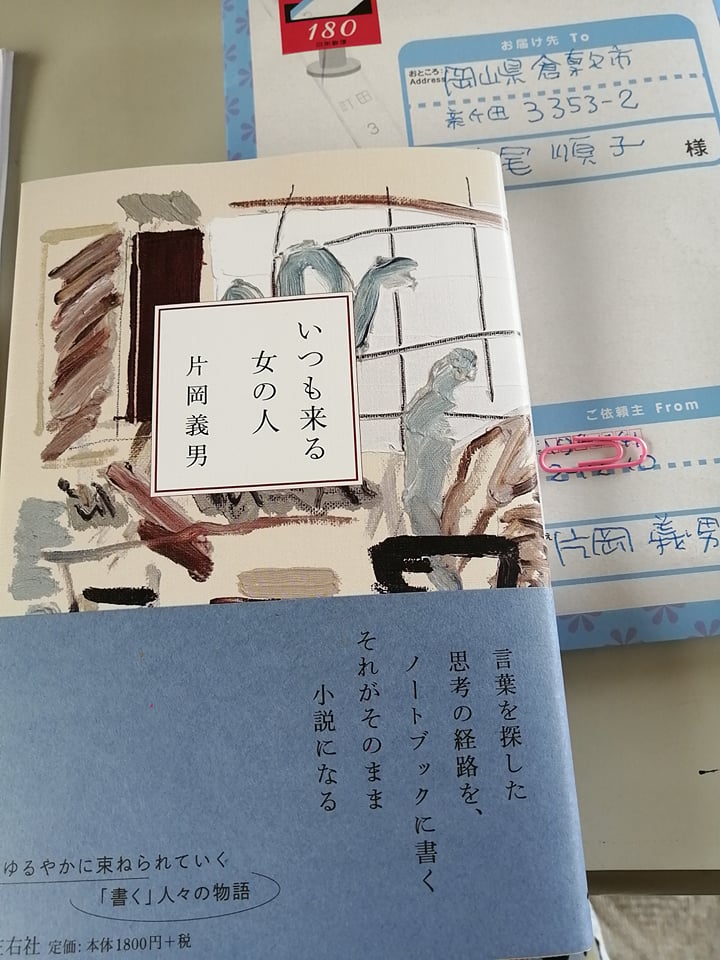 180
日本郵便
お届け先 To
おところ
Address
岡山県倉敷市
3353-2
尾 順子
様
ご依頼主 From
片岡 義男
いつも来る
女の人
片岡義男
言葉を探した
思考の経路を、
ノートブックに書く
それがそのまま
小説になる
ゆるやかに束ねられていく
「書く」人々の物語
左右社 定価:本体1800円+税